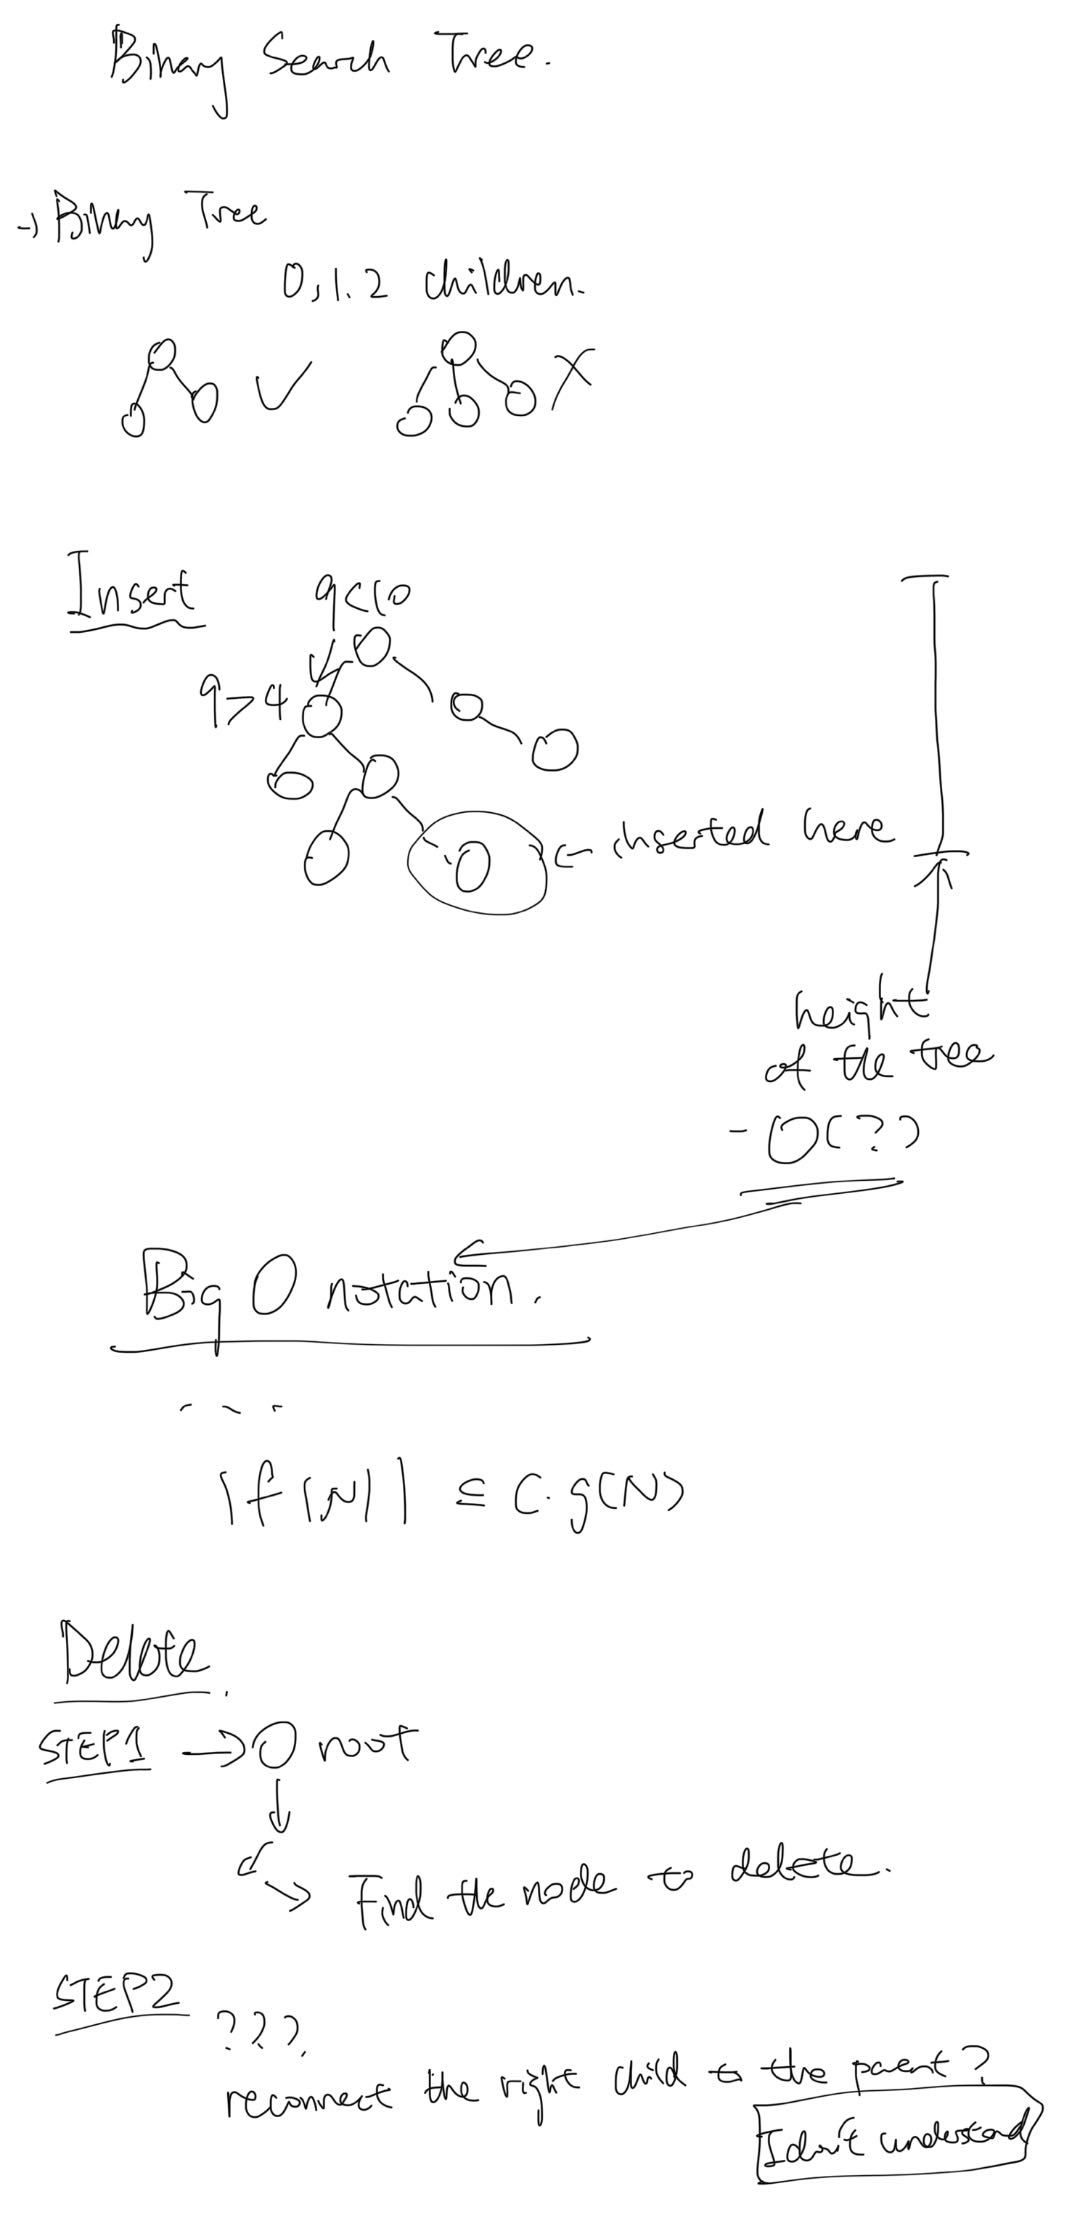 Binary Search Tree.
→ Binary Tree
0, 1. 2 children.
Insert
9<10
9>4
← inserted here
height
of the tree
- O(?)
Big O notation.
...
|f(N)| ≤ C. g(N)
Delete.
STEP1 → root
Find the node to delete.
STEP2
???
reconnect the right child to the parent?
I don't understand